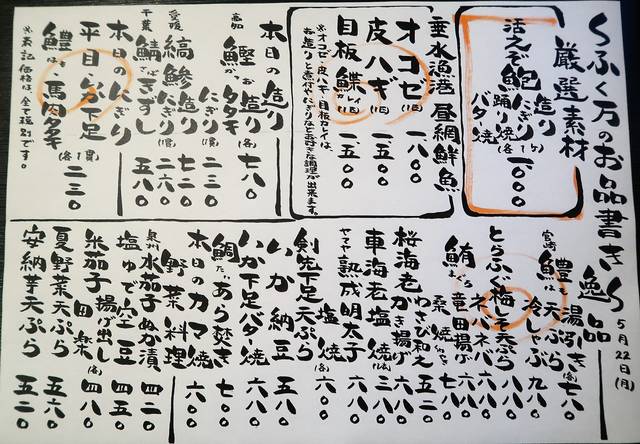 くふく万のお品書き
5月22日(月)
厳選素材
活えび 造り
鮑 にぎり
踊り焼
バター焼
(各1ケ)
一、〇〇〇
垂水漁港 昼網鮮魚
オコゼ(1匹) 一、八〇〇
皮ハギ(1匹) 一、五〇〇
目板鰈(1匹) 一、五〇〇
本日の造り
高知 鰹 造り(各) 七八〇
タタキ
にぎり(1貫) 二三〇
愛媛 縞鯵 造り 七二〇
にぎり(1貫) 二六〇
千葉 鯖きずし 五八〇
本日のにぎり
平目・いか下足
鱧・馬肉タタキ(各1貫) 二三〇
※表記価格は全て税別です。
逸品
宮崎 鱧 湯引き(各) 七八〇
天ぷら
冷しゃぶ 九八〇
とらふぐ梅しそ天ぷら 八八〇
鮪 ネバネバ 六八〇
竜田揚げ 六八〇
桑焼 七八〇
わさび和え 五二〇
桜海老かき揚げ 六八〇
車海老塩焼 三八〇
ヤマヤ熟成明太子 六八〇
剣先下足天ぷら 塩焼(各) 六八〇
いか納豆 五八〇
いか下足バター焼 六八〇
鯛あら焚き 七〇〇
本日のカマ焼 六〇〇
野菜料理
泉州 水茄子ぬか漬 四二〇
塩ゆで空豆 四五〇
米茄子 揚げ出し 四八〇
田楽(各)
夏野菜天ぷら 五六〇
安納芋天ぷら 五二〇